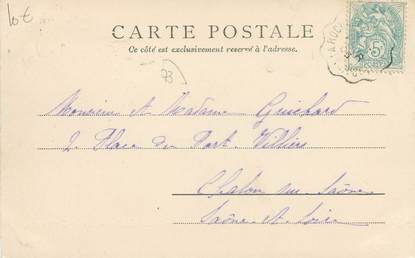 10 €
CARTE POSTALE
Ce côté est exclusivement réservé à l'adresse.
73
5
Monsieur et Madame Guichard
2 Place du Port Villiers
Chalon sur Saône
Saône et Loire